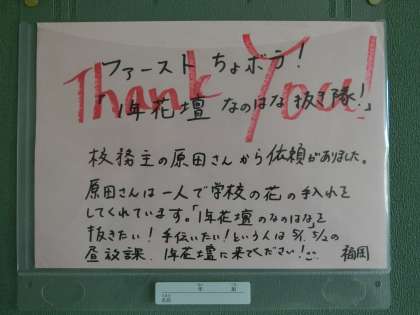 Thank You!
ファースト ちょボラ!
「1年花壇 なのはな抜き隊!」
校務主の原田さんから依頼がありました。
原田さんは一人で学校の花の手入れを
してくれています。「1年花壇のなのはな」を
抜きたい!手伝いたい!という人は 5/1、5/2の
昼放課、1年花壇に来てください! 福岡
年 組